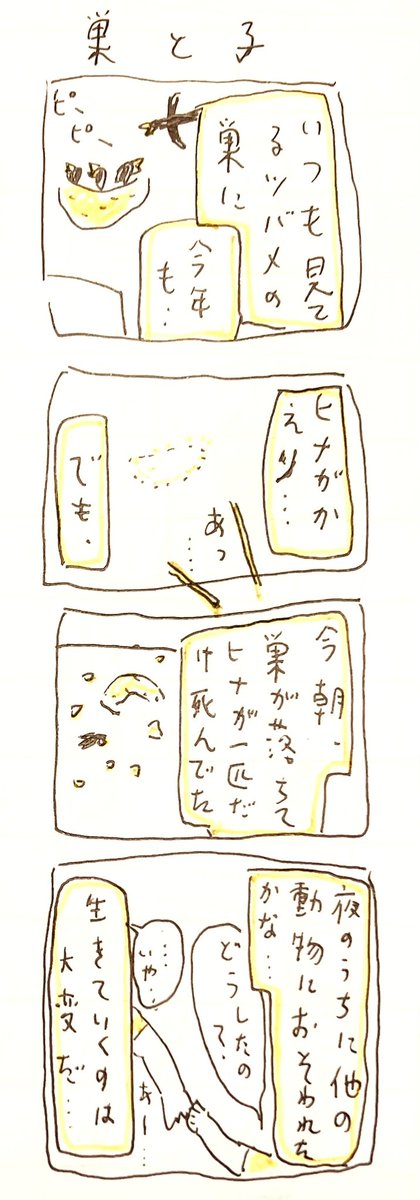 巣と子
いつも見て
るツバメの
巣に
今年
も…
ピー
ピー
ヒナがか
えり…
あっ
……
でも、
今朝、
巣が落ちて
ヒナが一匹だ
け死んでた
夜のうちに他の
動物におそわれた
かな…
どうしたの
？
……
いや…
生きていくのは
大変だ…